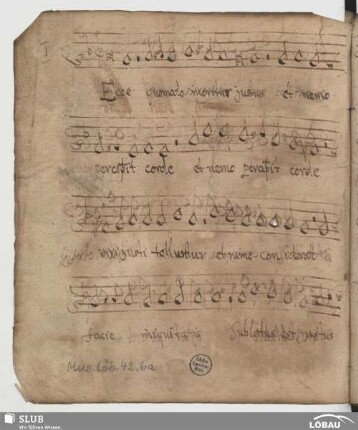 Ecce quomodo moritur justus et nemo
percipit corde et nemo percipit corde
tolluntur et nemo con
facie iniquitatis Sublatus est justus
Mus. Löb. 42, 6a
SLUB
Wir führen Wissen.
LÖBAU